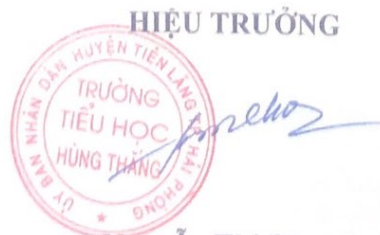 HIỆU TRƯỞNG
ỦY BAN NHÂN DÂN HUYỆN TIÊN LÃNG
HẢI PHÒNG
TRƯỜNG
TIỂU HỌC
HÙNG THẮNG